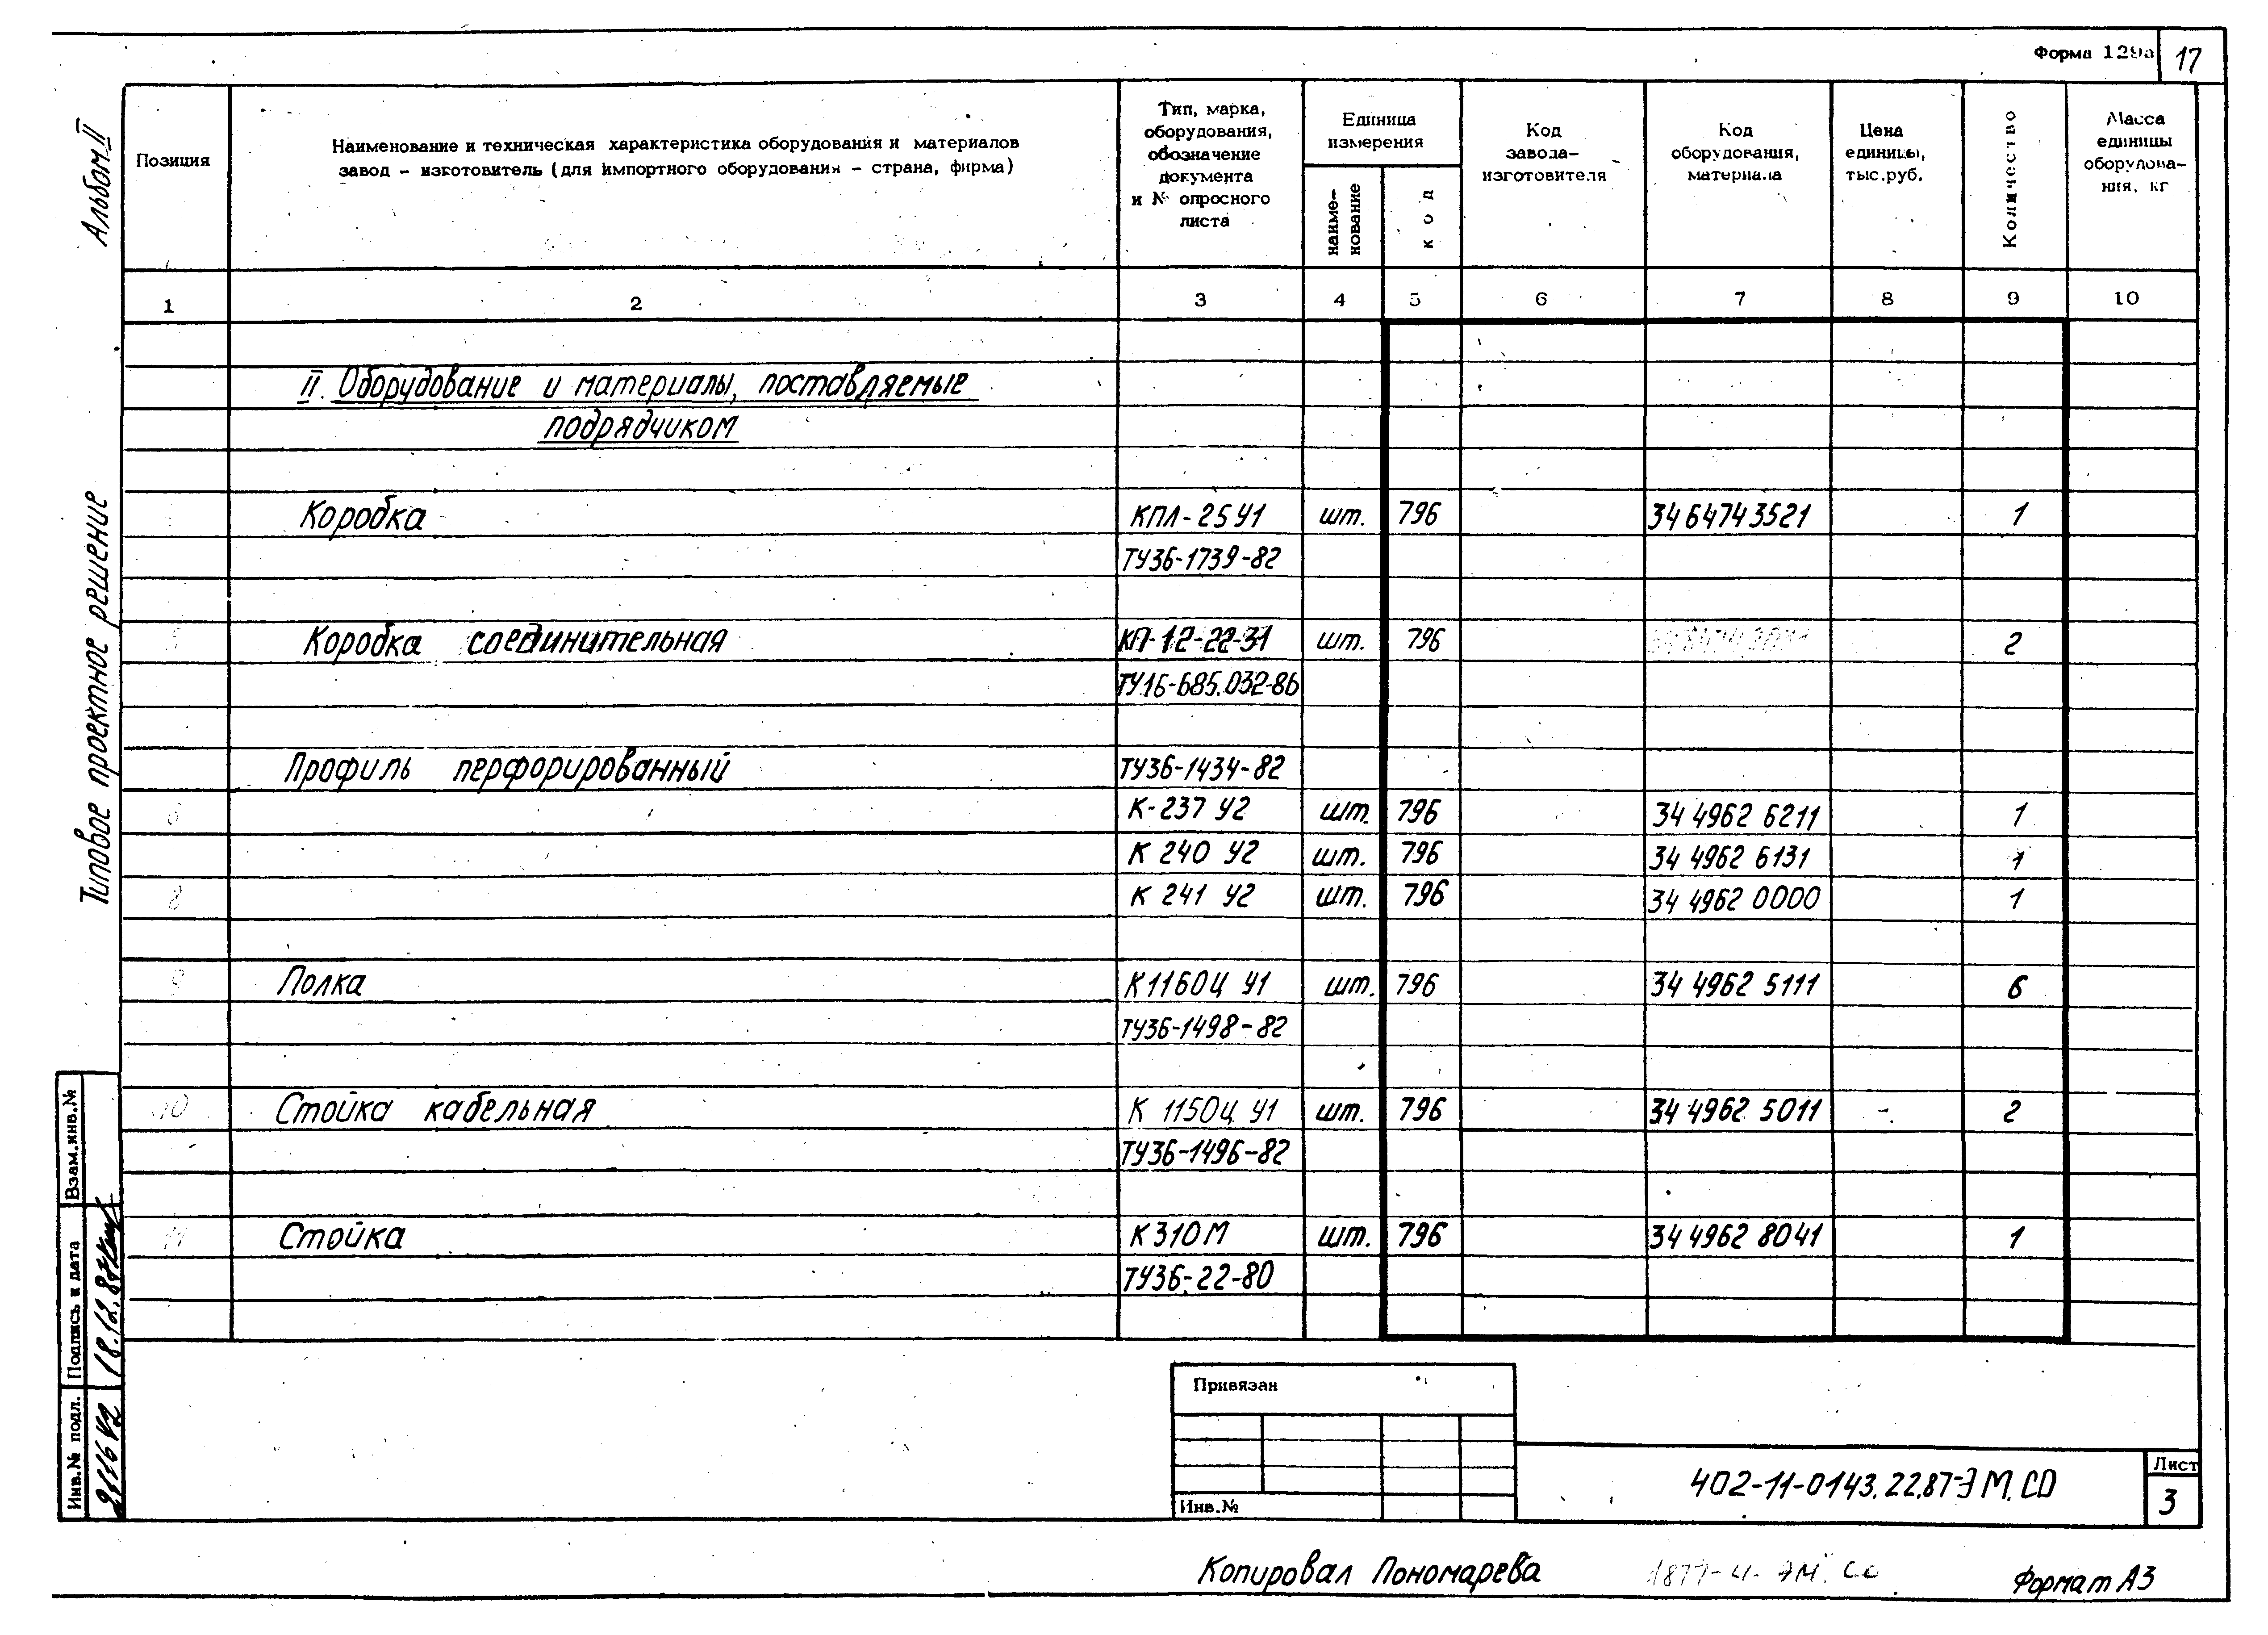 Форма 129а 17
Альбом II
Типовое проектное решение
Позиция
Наименование и техническая характеристика оборудования и материалов
завод – изготовитель (для импортного оборудования – страна, фирма)
Тип, марка,
оборудования,
обозначение
документа
и № опросного
листа
Единица
измерения
наиме-
нование
код
Код
завода-
изготовителя
Код
оборудования,
материала
Цена
единицы,
тыс.руб.
Количество
Масса
единицы
оборудова-
ния, кг
1 2 3 4 5 6 7 8 9 10
II. Оборудование и материалы, поставляемые
подрядчиком
Коробка КПЛ-25У1 шт. 796 34 6474 3521 1
ТУ36-1739-82
5 Коробка соединительная КП-12-22-31 шт. 796 2
ТУ16-685.032-86
Профиль перфорированный ТУ36-1434-82
6 К-237 У2 шт. 796 34 4962 6211 1
К 240 У2 шт. 796 34 4962 6131 1
8 К 241 У2 шт. 796 34 4962 0000 1
9 Полка К1160Ц У1 шт. 796 34 4962 5111 6
ТУ36-1498-82
10 Стойка кабельная К 1150Ц У1 шт. 796 34 4962 5011 2
ТУ36-1496-82
11 Стойка К310М шт. 796 34 4962 8041 1
ТУ36-22-80
Взам.инв.№
Подпись и дата 18.12.87
Инв.№ подл.
Привязан
Инв.№
402-11-0143.22.87-ЭМ.СО
Лист
3
Копировал Пономарева
Формат А3